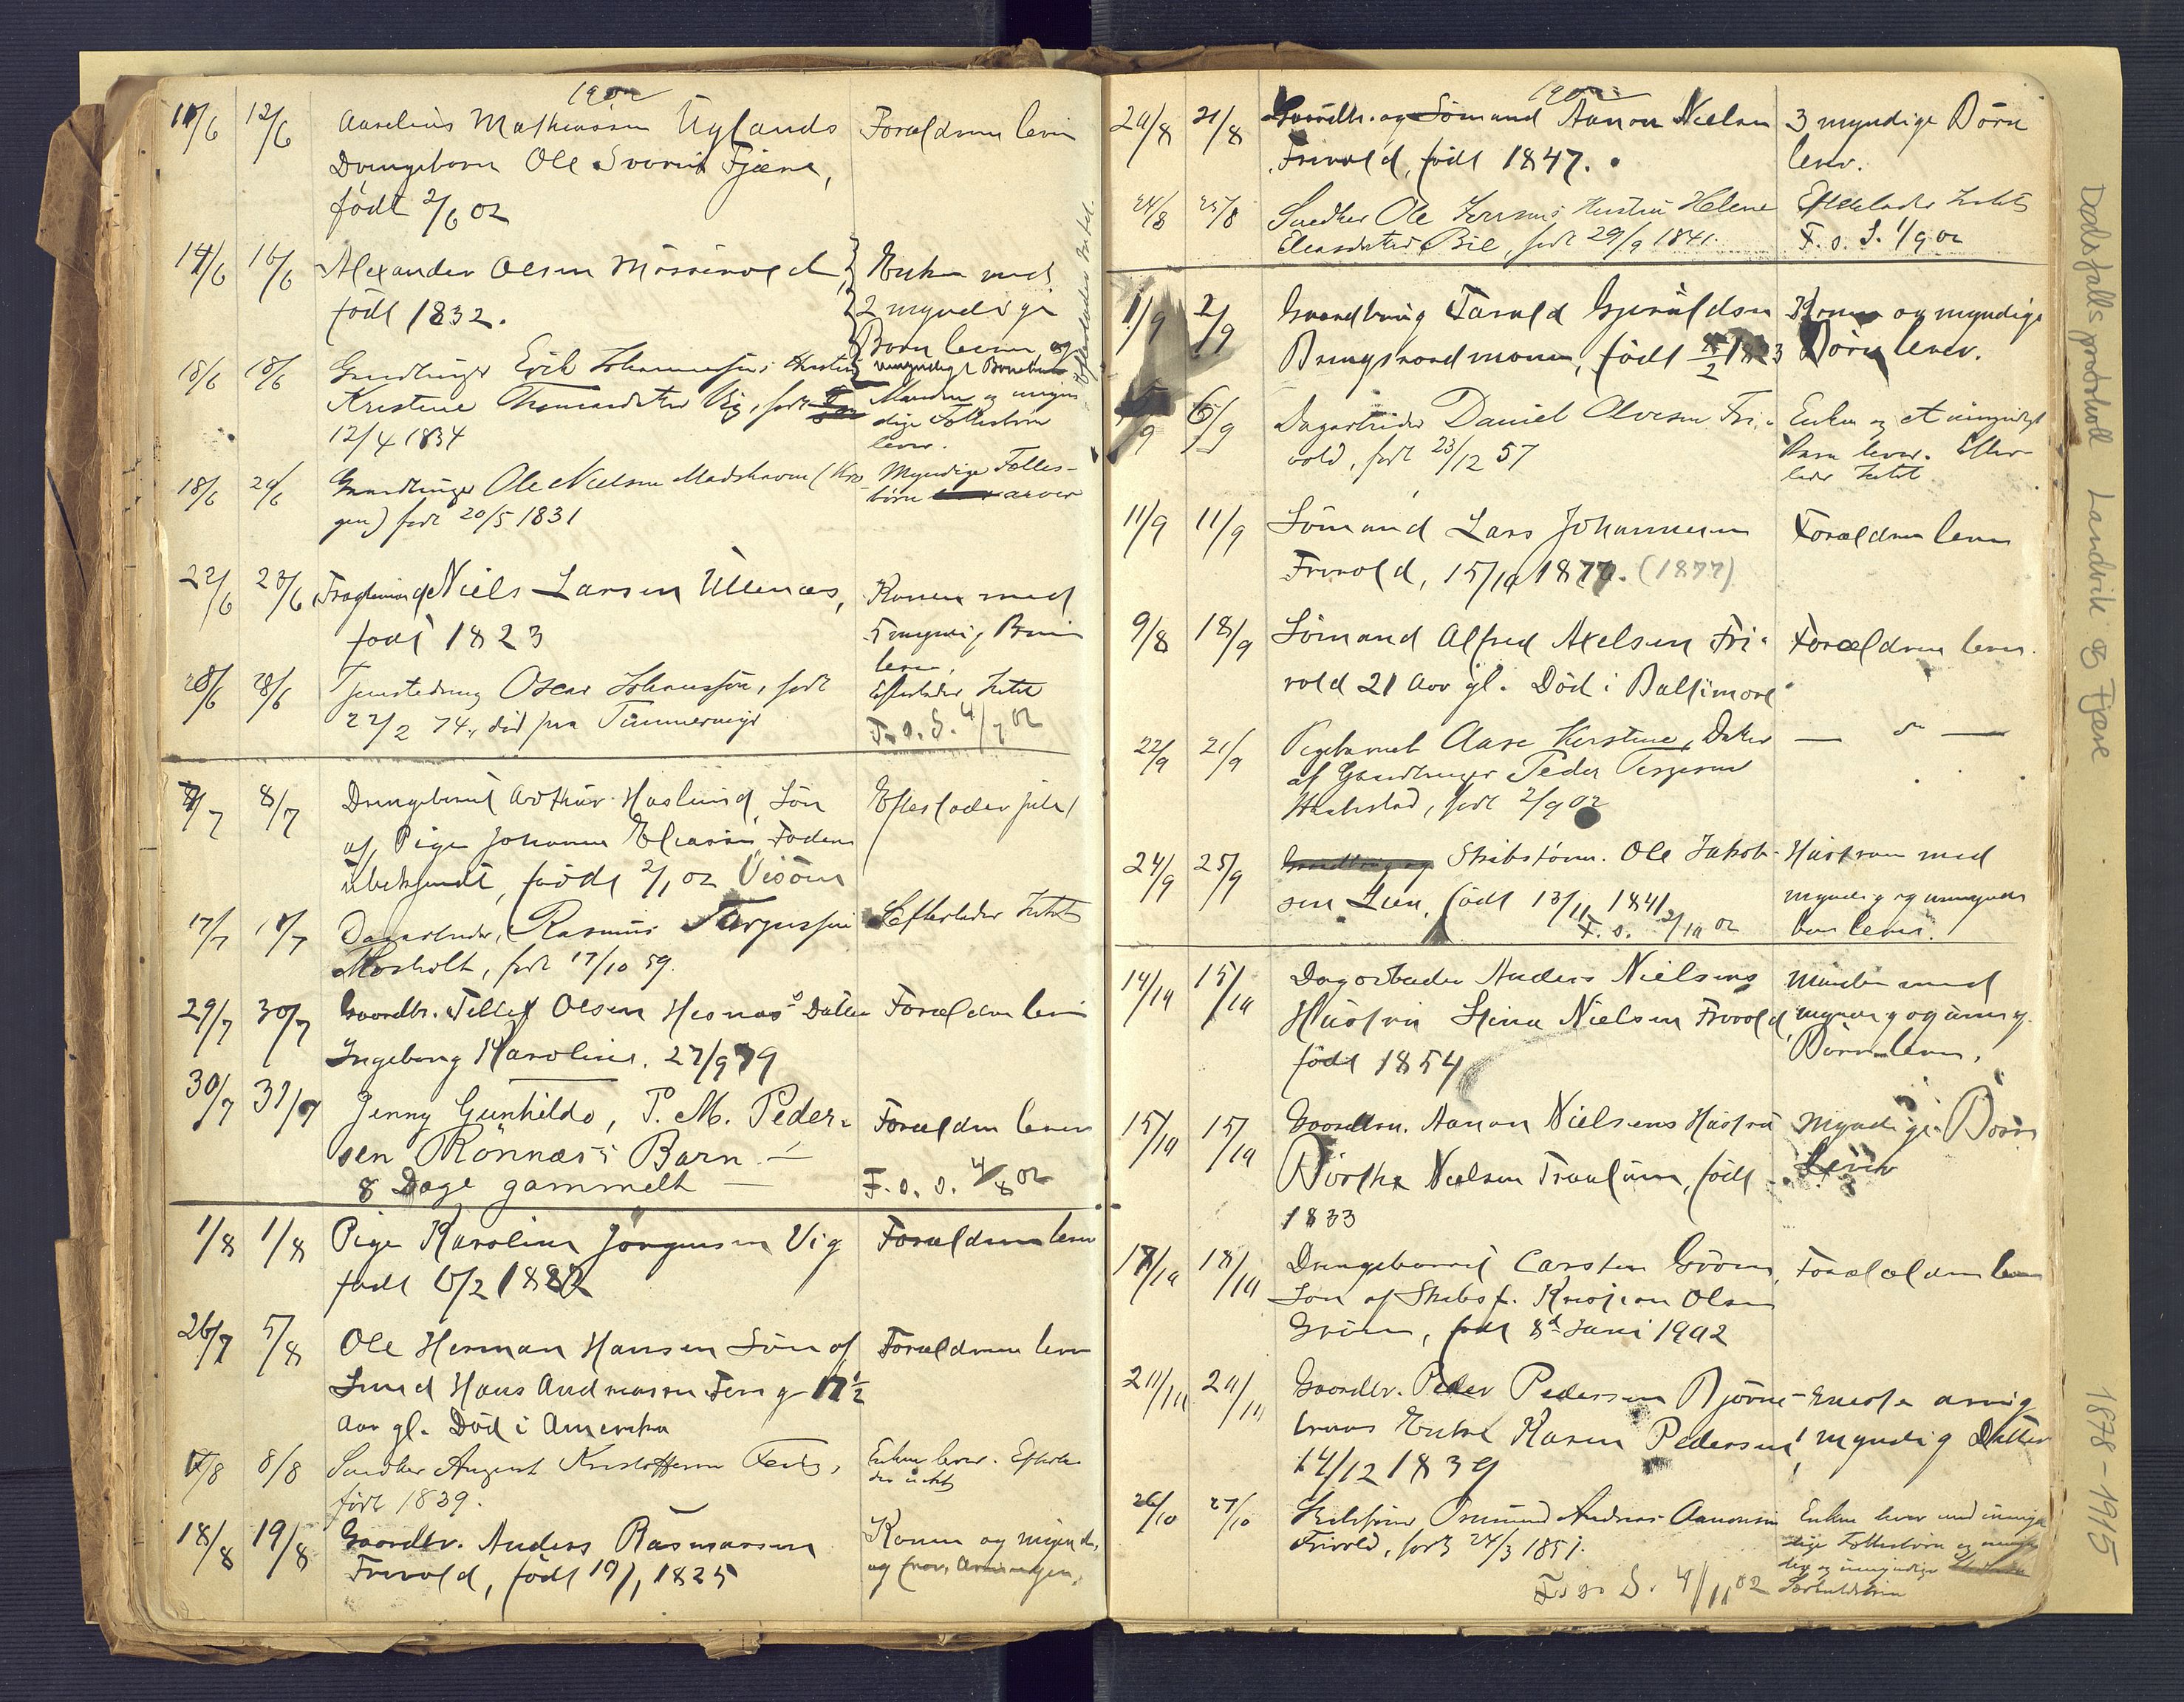 1902
11/6 12/6 Aurelius Mathiassen Uglands Forældrene lever
Drengebarn Ole Sverre Fjære,
født 2/6 02
14/6 16/6 Alexander Olsen Enken med
født 1832. 2 myndige
Børn lever og
18/6 18/6 Gaardbruger Erik Johannessens Hustru umyndigt Barnebarn
Kristine Thomasdatter Vig, født Manden og myn
12/4 1834 dige Fællesbørn
lever.
Efterlader Intet.
18/6 20/6 Gaardbruger Ole Nielsen Madshaven (Kro- Myndige Fælles-
gen) født 20/5 1831 børn arver
22/6 23/6 Fragtemand Niels Larsen Ullenæs, Konen med
født 1823 5 myndig Børn
lever.
28/6 28/6 Tjenestedreng Oscar Johansen, født Efterlader Intet
22/2 74, død paa F.o.S. 4/7 02
8/7 Drengebarnet Arthur Haslund, Søn Efterlader Intet
af Pige Johanne Eliassen, Faderen
ubekjendt, født 2/1 02
17/7 18/7 Dagarbeider, Rasmus Tergussen Efterlader Intet
Morholt, født 17/10 59.
29/7 30/7 Gaardbr. Tellef Olsen Hesnæs' Datter Forældrene lever
Ingeborg Karoline. 27/9 79
30/7 31/7 Jenny Gunhilda, P. M. Peder- Forældrene lever
sen Rønnæs's Barn —
8 Dage gammelt — F.o.S. 4/8 02
1/8 1/8 Pige Karoline Jørgensen Vig Forældrene lever
født 6/2 1882
26/7 5/8 Ole Herman Hansen Søn af Forældrene lever
Smed Hans Andreassen Ferig 17½
Aar gl. Død i Amerika
8/8 Snedker August Kristoffersen Enken lever. Efterla
født 1839. der intet
18/8 19/8 Gaardbr. Anders Rasmussen Konen og myndig
Frivold, født 19/1 1825
1902
20/8 21/8 Gaardbr. og Sømand Aanon Nielsen 3 myndige Børn
Frivold, født 1847. lever.
24/8 25/8 Snedker Ole Jensens Hustru Helene Efterlader Intet
Eleasdatter Bie, født 29/9 1841. F.o.S. 1/9 02
1/9 2/9 Gaardbrug Tarald Gjeruldsen Konen og myndige
Bringsværdmoen, født Børn lever.
5/9 6/9 Dagarbeider Daniel Olversen Fri- Enken og et umyndigt
vold, født 23/12 57 Barn lever. Efter-
lader Intet
11/9 11/9 Sømand Lars Johannesen Forældrene lever
Frivold, 15/10 1877. (1877)
9/8 18/9 Sømand Alfred Axelsen Fri- Forældrene lever.
vold 21 Aar gl. Død i Baltimore
22/9 21/9 Pigebarnet Aase Kirstine, Datter — " —
af Gaardbruger Peder Terjesen
født 2/9 02
24/9 25/9 Skibsfører. Ole Jakob- Hustruen med
sen Lien, født 13/11 1841. myndig og umyndig
F.o. 2/10 02 barn lever.
14/10 15/10 Dagarbeider Anders Nielsens Manden med
Hustru Stina Nielsen Frivold, myndig og umy.
født 1854 Børn lever.
15/10 15/10 Gaardbr. Aanon Nielsens Hustru Myndige Børn
Dorthe Nielsen født lever
1833
17/10 18/10 Drengebarnet Carsten Grøm, Forældrene lever
Søn af Skibsf. Kristian Olsen
Grøm, født 8de Juni 1902
20/10 20/10 Gaardbr. Peder Pedersen Bjørne- Eneste arving
traas Enke Karen Pedersen, myndig Datter
14/12 1839
26/10 27/10 Skibsfører Osmund Andreas Aanonsen Enken lever med umyn
Frivold, født 24/3 1851. dige Fællesbørn og
dig og umyndige
F.o.S. 4/11 02 Særkuldsbørn
Dødsfallsprotokoll Landvik og Fjære
1878 - 1915